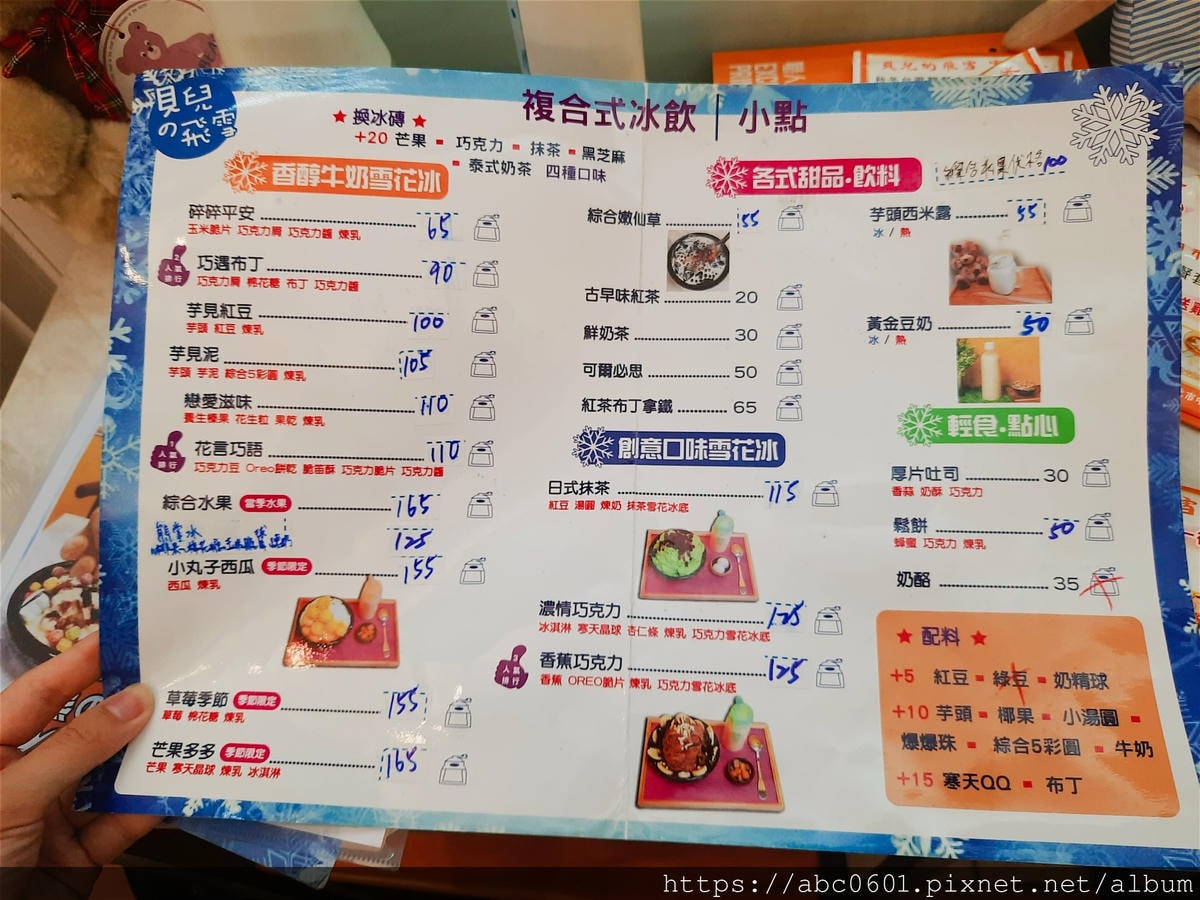 貝兒
の飛雪
複合式冰飲 | 小點
★ 換冰磚 ★
+20 芒果 - 巧克力 - 抹茶 - 黑芝麻
- 泰式奶茶 四種口味
香醇牛奶雪花冰
碎碎平安 65
玉米脆片 巧克力屑 巧克力醬 煉乳
2
人氣排行
巧遇布丁 90
巧克力屑 棉花糖 布丁 巧克力醬
芋見紅豆 100
芋頭 紅豆 煉乳
芋見泥 105
芋頭 芋泥 綜合5彩圓 煉乳
戀愛滋味 110
養生榛果 花生粒 果乾 煉乳
1
人氣排行
花言巧語 110
巧克力豆 Oreo餅乾 脆笛酥 巧克力脆片 巧克力醬
綜合水果 當季水果 165
125
小丸子西瓜 季節限定 155
西瓜 煉乳
草莓季節 季節限定 155
草莓 棉花糖 煉乳
芒果多多 季節限定 165
芒果 寒天晶球 煉乳 冰淇淋
各式甜品·飲料
100
綜合嫩仙草 55
古早味紅茶 20
鮮奶茶 30
可爾必思 50
紅茶布丁拿鐵 65
芋頭西米露 55
冰 / 熱
黃金豆奶 50
冰 / 熱
創意口味雪花冰
日式抹茶 115
紅豆 湯圓 煉奶 抹茶雪花冰底
濃情巧克力 125
冰淇淋 寒天晶球 杏仁條 煉乳 巧克力雪花冰底
3
人氣排行
香蕉巧克力 125
香蕉 OREO脆片 煉乳 巧克力雪花冰底
輕食·點心
厚片吐司 30
香蒜 奶酥 巧克力
鬆餅 50
蜂蜜 巧克力 煉乳
奶酪 35
★ 配料 ★
+5 紅豆 - 綠豆 - 奶精球
+10 芋頭 - 椰果 - 小湯圓 -
爆爆珠 - 綜合5彩圓 - 牛奶
+15 寒天QQ - 布丁
https://abc0601.pixnet.net/album